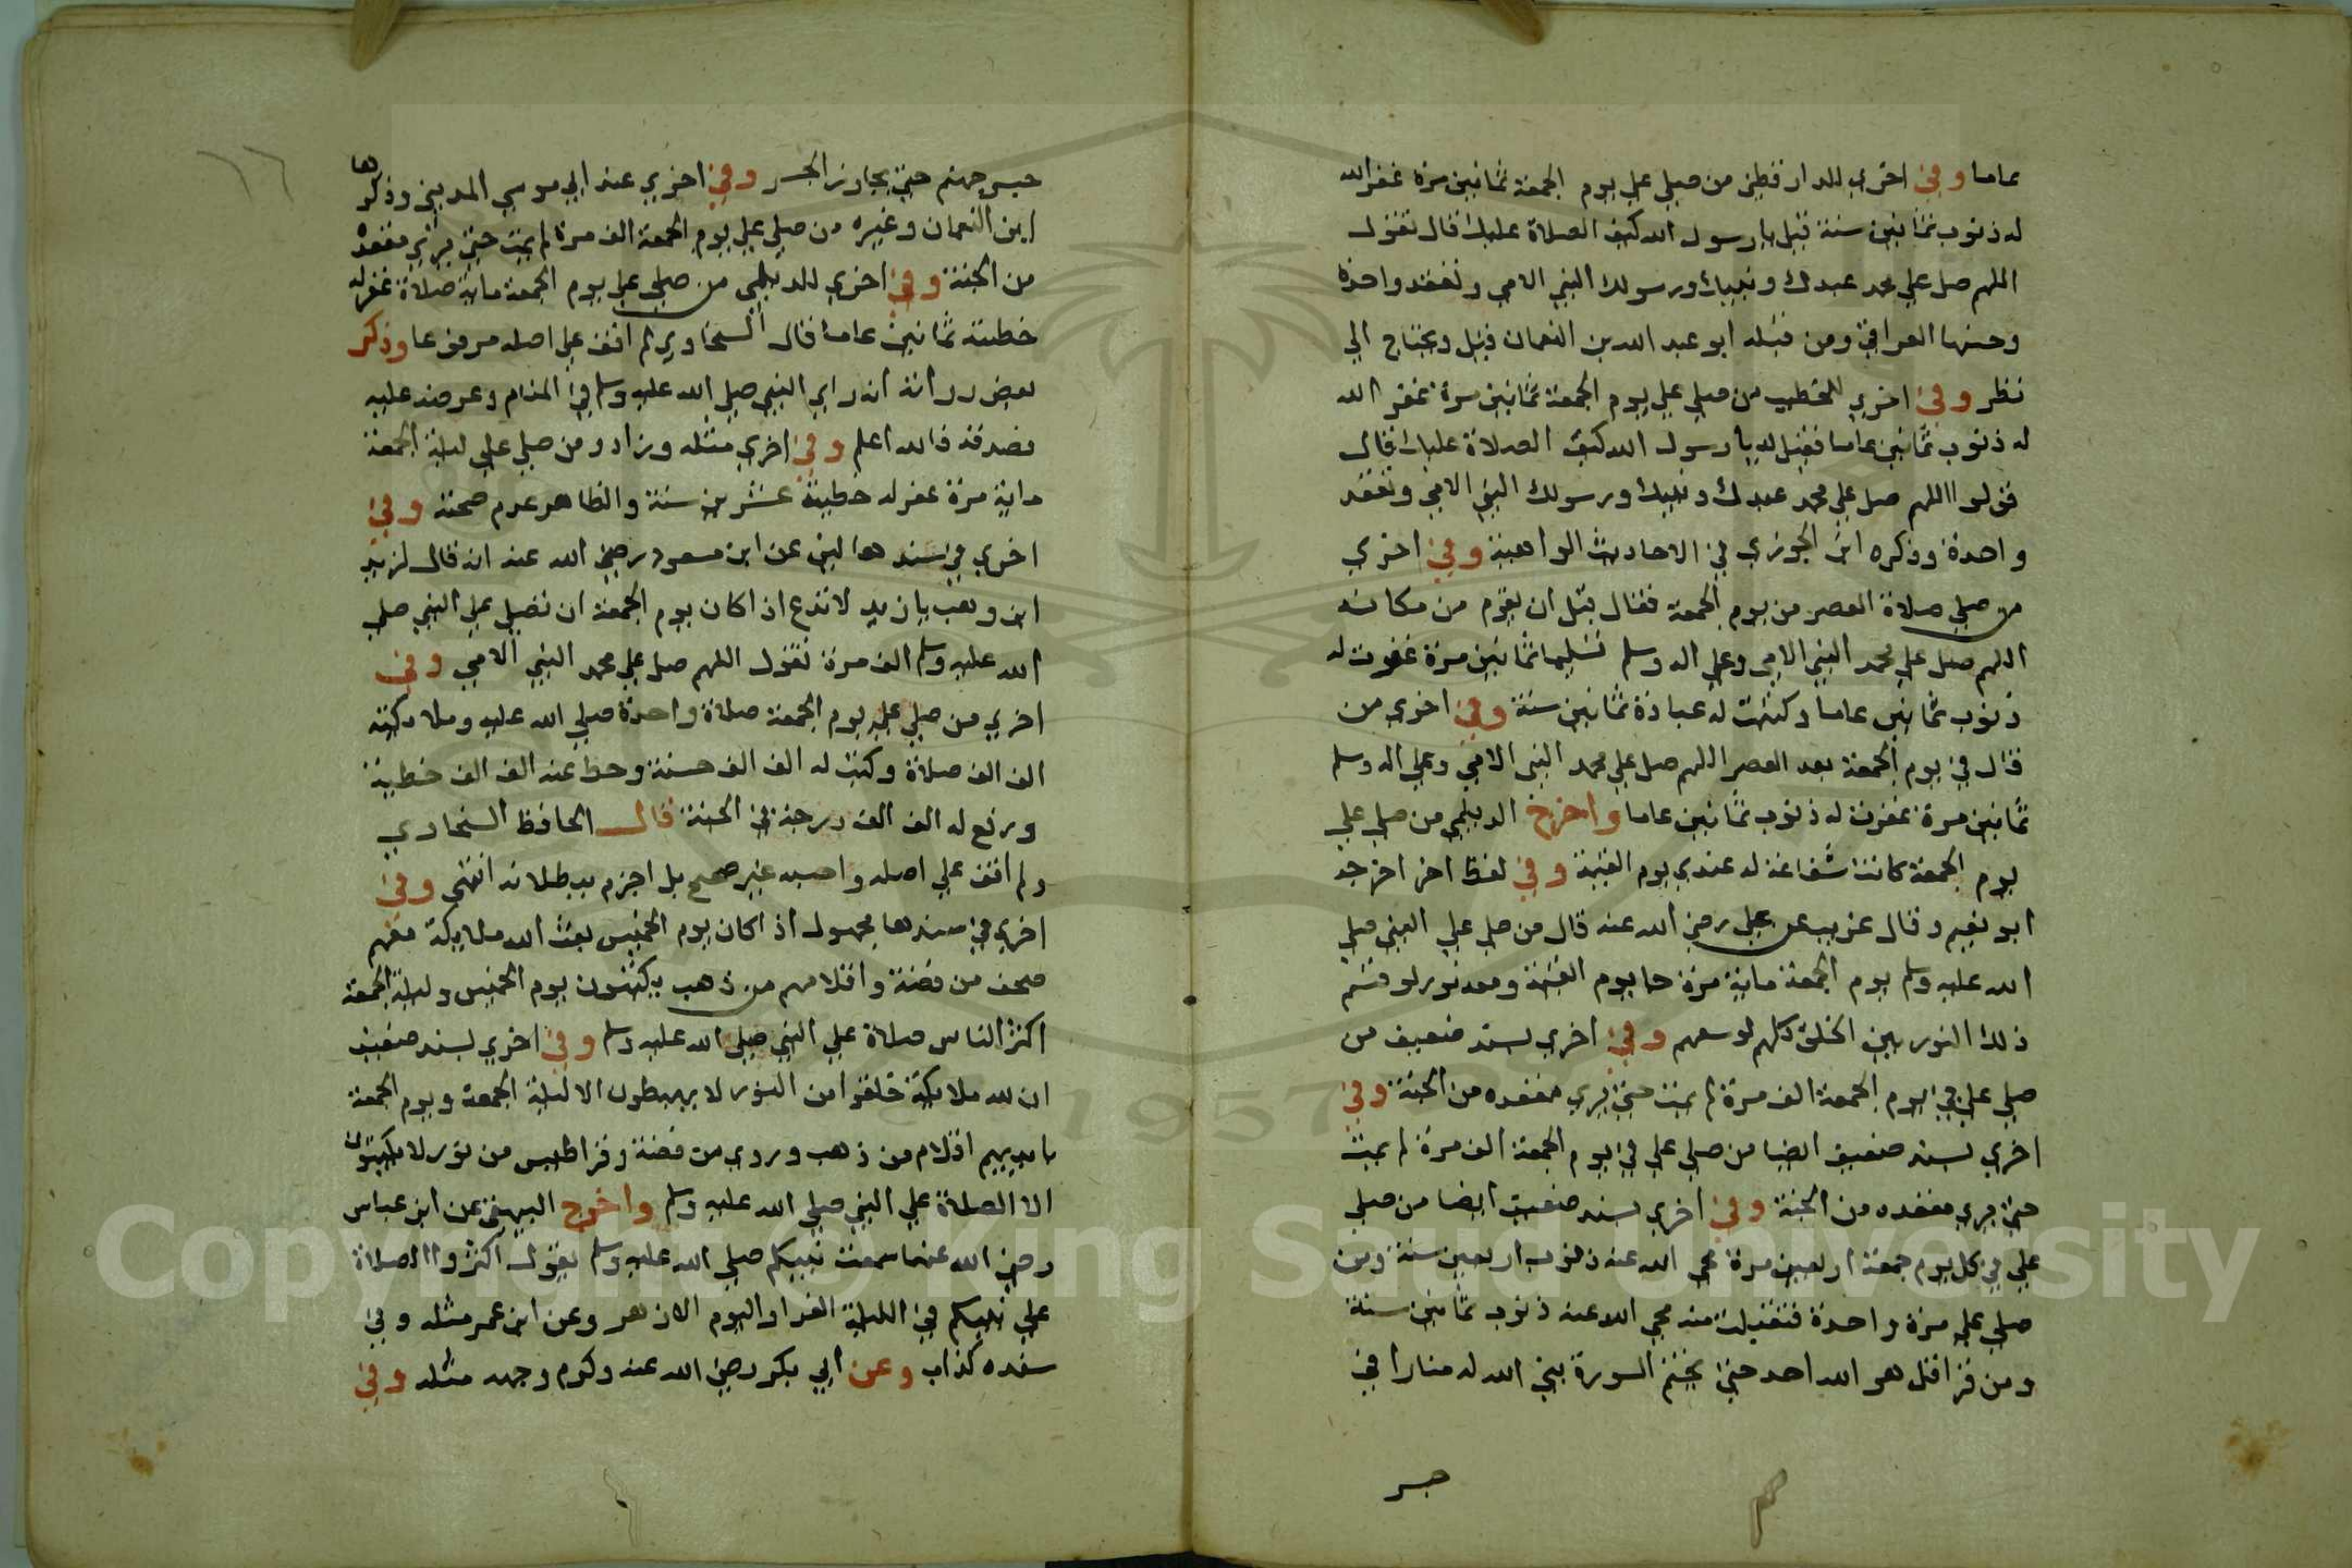 عاما وفي اخري للدارقطني من صلي علي يوم الجمعة ثمانين مرة غفر الله
له ذنوب ثمانين سنة قيل يا رسول الله كيف الصلاة عليك قال تقول
اللهم صل علي محمد عبدك ونبيك ورسولك النبي الامي وتعقد واحدة
وحسنها العراقي ومن قبله ابو عبد الله بن النعمان قيل ويحتاج الي
نظر وفي اخري للخطيب من صلي علي يوم الجمعة ثمانين مرة غفر الله
له ذنوب ثمانين عاما فقيل له يا رسول الله كيف الصلاة عليك قال
قولوا اللهم صل علي محمد عبدك ونبيك ورسولك النبي الامي وتعقد
واحدة وذكره ابن الجوزي في الاحاديث الواهية وفي اخري
من صلي صلاة العصر من يوم الجمعة فقال قبل ان يقوم من مكانه
اللهم صل علي محمد النبي الامي وعلي اله وسلم تسليما ثمانين مرة غفرت له
ذنوب ثمانين عاما وكتبت له عبادة ثمانين سنة وفي اخري من
قال في يوم الجمعة بعد العصر اللهم صل علي محمد النبي الامي وعلي اله وسلم
ثمانين مرة غفرت له ذنوب ثمانين عاما واخرج الديلمي من صلي علي
يوم الجمعة كانت شفاعة له عندي يوم القيمة وفي لفظ اخر اخرجه
ابو نعيم وقال غريب عن علي رضي الله عنه قال من صلي علي النبي صلي
الله عليه وسلم يوم الجمعة ماية مرة جا يوم القيمة ومعه نور لو قسم
ذلك النور بين الخلق كلهم لوسعهم وفي اخري بسند ضعيف من
صلي علي في يوم الجمعة الف مرة لم يمت حتي يري مقعده من الجنة وفي
اخري بسند ضعيف ايضا من صلي علي في يوم الجمعة الف مرة لم يمت
حتي يري مقعده من الجنة وفي اخري بسند ضعيف ايضا من صلي
علي في كل يوم جمعة اربعين مرة محي الله عنه ذنوب اربعين سنة ومن
صلي علي مرة واحدة فتقبلت منه محي الله عنه ذنوب ثمانين سنة
ومن قرا قل هو الله احد حتي يختم السورة بني الله له منارا في
جسر
جسر جهنم حتي يجاوز الجسر وفي اخري عند ابي موسي المديني وذكرها
ابن النعمان وغيره من صلي علي يوم الجمعة الف مرة لم يمت حتي يري مقعده
من الجنة وفي اخري للديلمي من صلي علي يوم الجمعة ماية صلاة غفر له
خطيئة ثمانين عاما قال السخاوي لم اقف علي اصله مرفوعا وذكر
بعض رواته انه راي النبي صلي الله عليه وسلم في المنام وعرضه عليه
فصدقه فالله اعلم وفي اخري مثله وزاد ومن صلي علي ليلة الجمعة
ماية مرة غفر له خطيئة عشرين سنة والظاهر عدم صحته وفي
اخري في سندها لين عن ابن مسعود رضي الله عنه انه قال لزيد
ابن وهب يا زيد لا تدع اذا كان يوم الجمعة ان تصلي علي النبي صلي
الله عليه وسلم الف مرة تقول اللهم صل علي محمد النبي الامي وفي
اخري من صلي علي يوم الجمعة صلاة واحدة صلي الله عليه وملايكته
الف الف صلاة وكتب له الف الف حسنة وحط عنه الف الف خطيئة
ورفع له الف الف درجة في الجنة قال الحافظ السخاوي
ولم اقف علي اصله واحسبه غير صحيح بل اجزم ببطلانه انتهي وفي
اخري في سندها مجهول اذا كان يوم الخميس بعث الله ملايكة معهم
صحف من فضة واقلامهم من ذهب يكتبون يوم الخميس وليلة الجمعة
اكثر الناس صلاة علي النبي صلي الله عليه وسلم وفي اخري بسند ضعيف
ان لله ملايكة خلقوا من النور لا يهبطون الا ليلة الجمعة ويوم الجمعة
بايديهم اقلام من ذهب وروي من فضة وقراطيس من نور لا يكتبون
الا الصلاة علي النبي صلي الله عليه وسلم واخرج البيهقي عن ابن عباس
رضي الله عنهما سمعت نبيكم صلي الله عليه وسلم يقول اكثروا الصلاة
علي نبيكم في الليلة الغرا واليوم الازهر وعن ابن عمر مثله وفي
سنده كذاب وعن ابي بكر رضي الله عنه وكرم وجهه مثله وفي
١٦
Copyright © King Saud University
1957